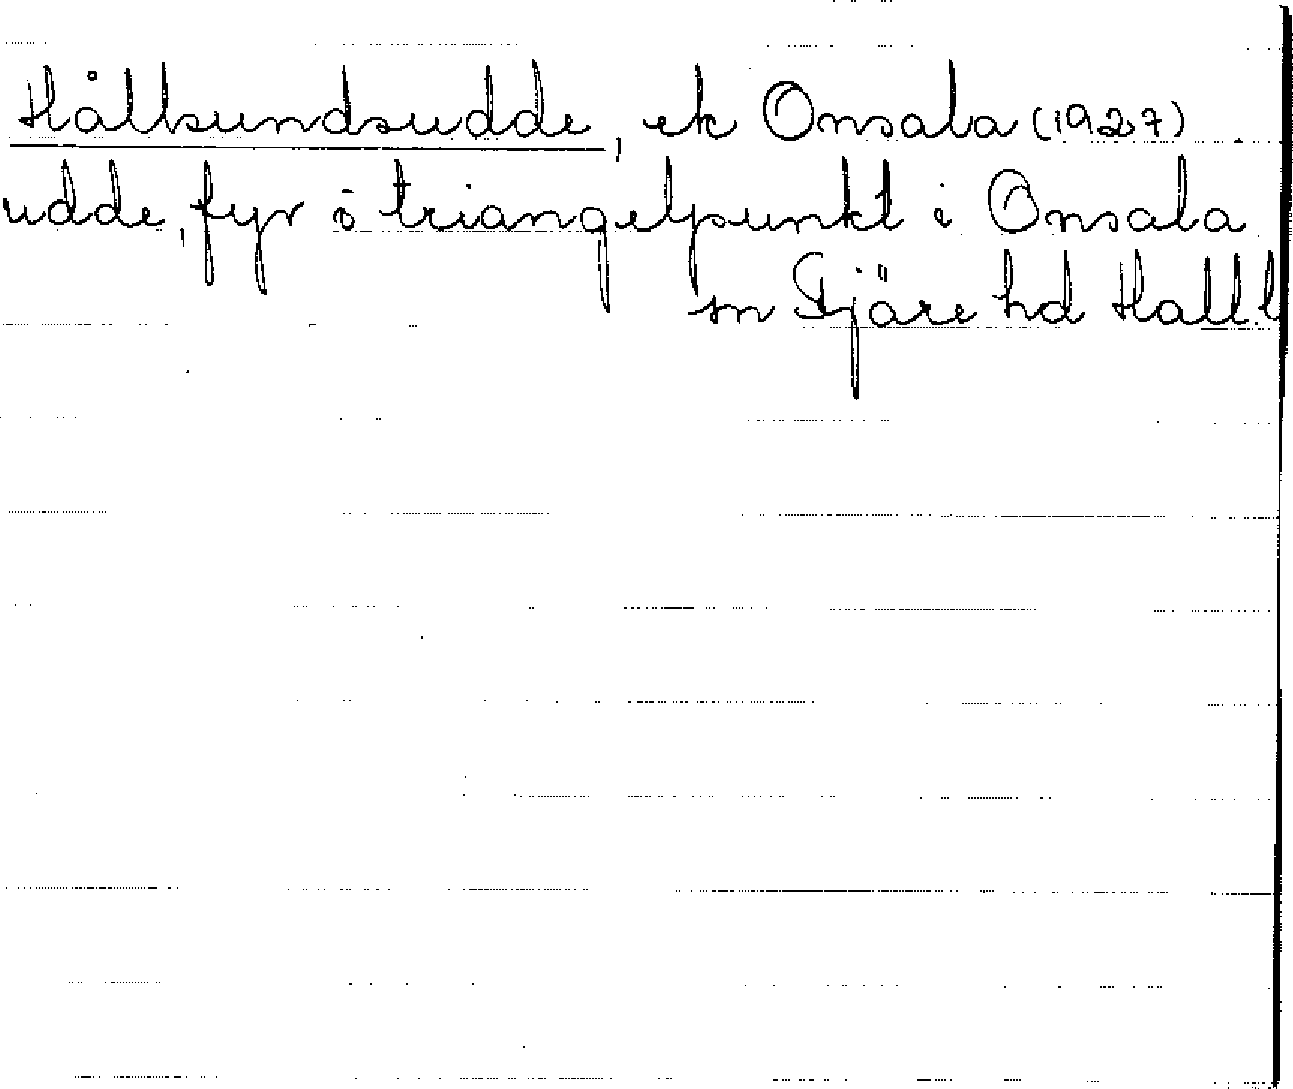 Hållsundsudde, ek Onsala (1927)
udde, fyr o triangelpunkt i Onsala
sn Fjäre hd Hall. l